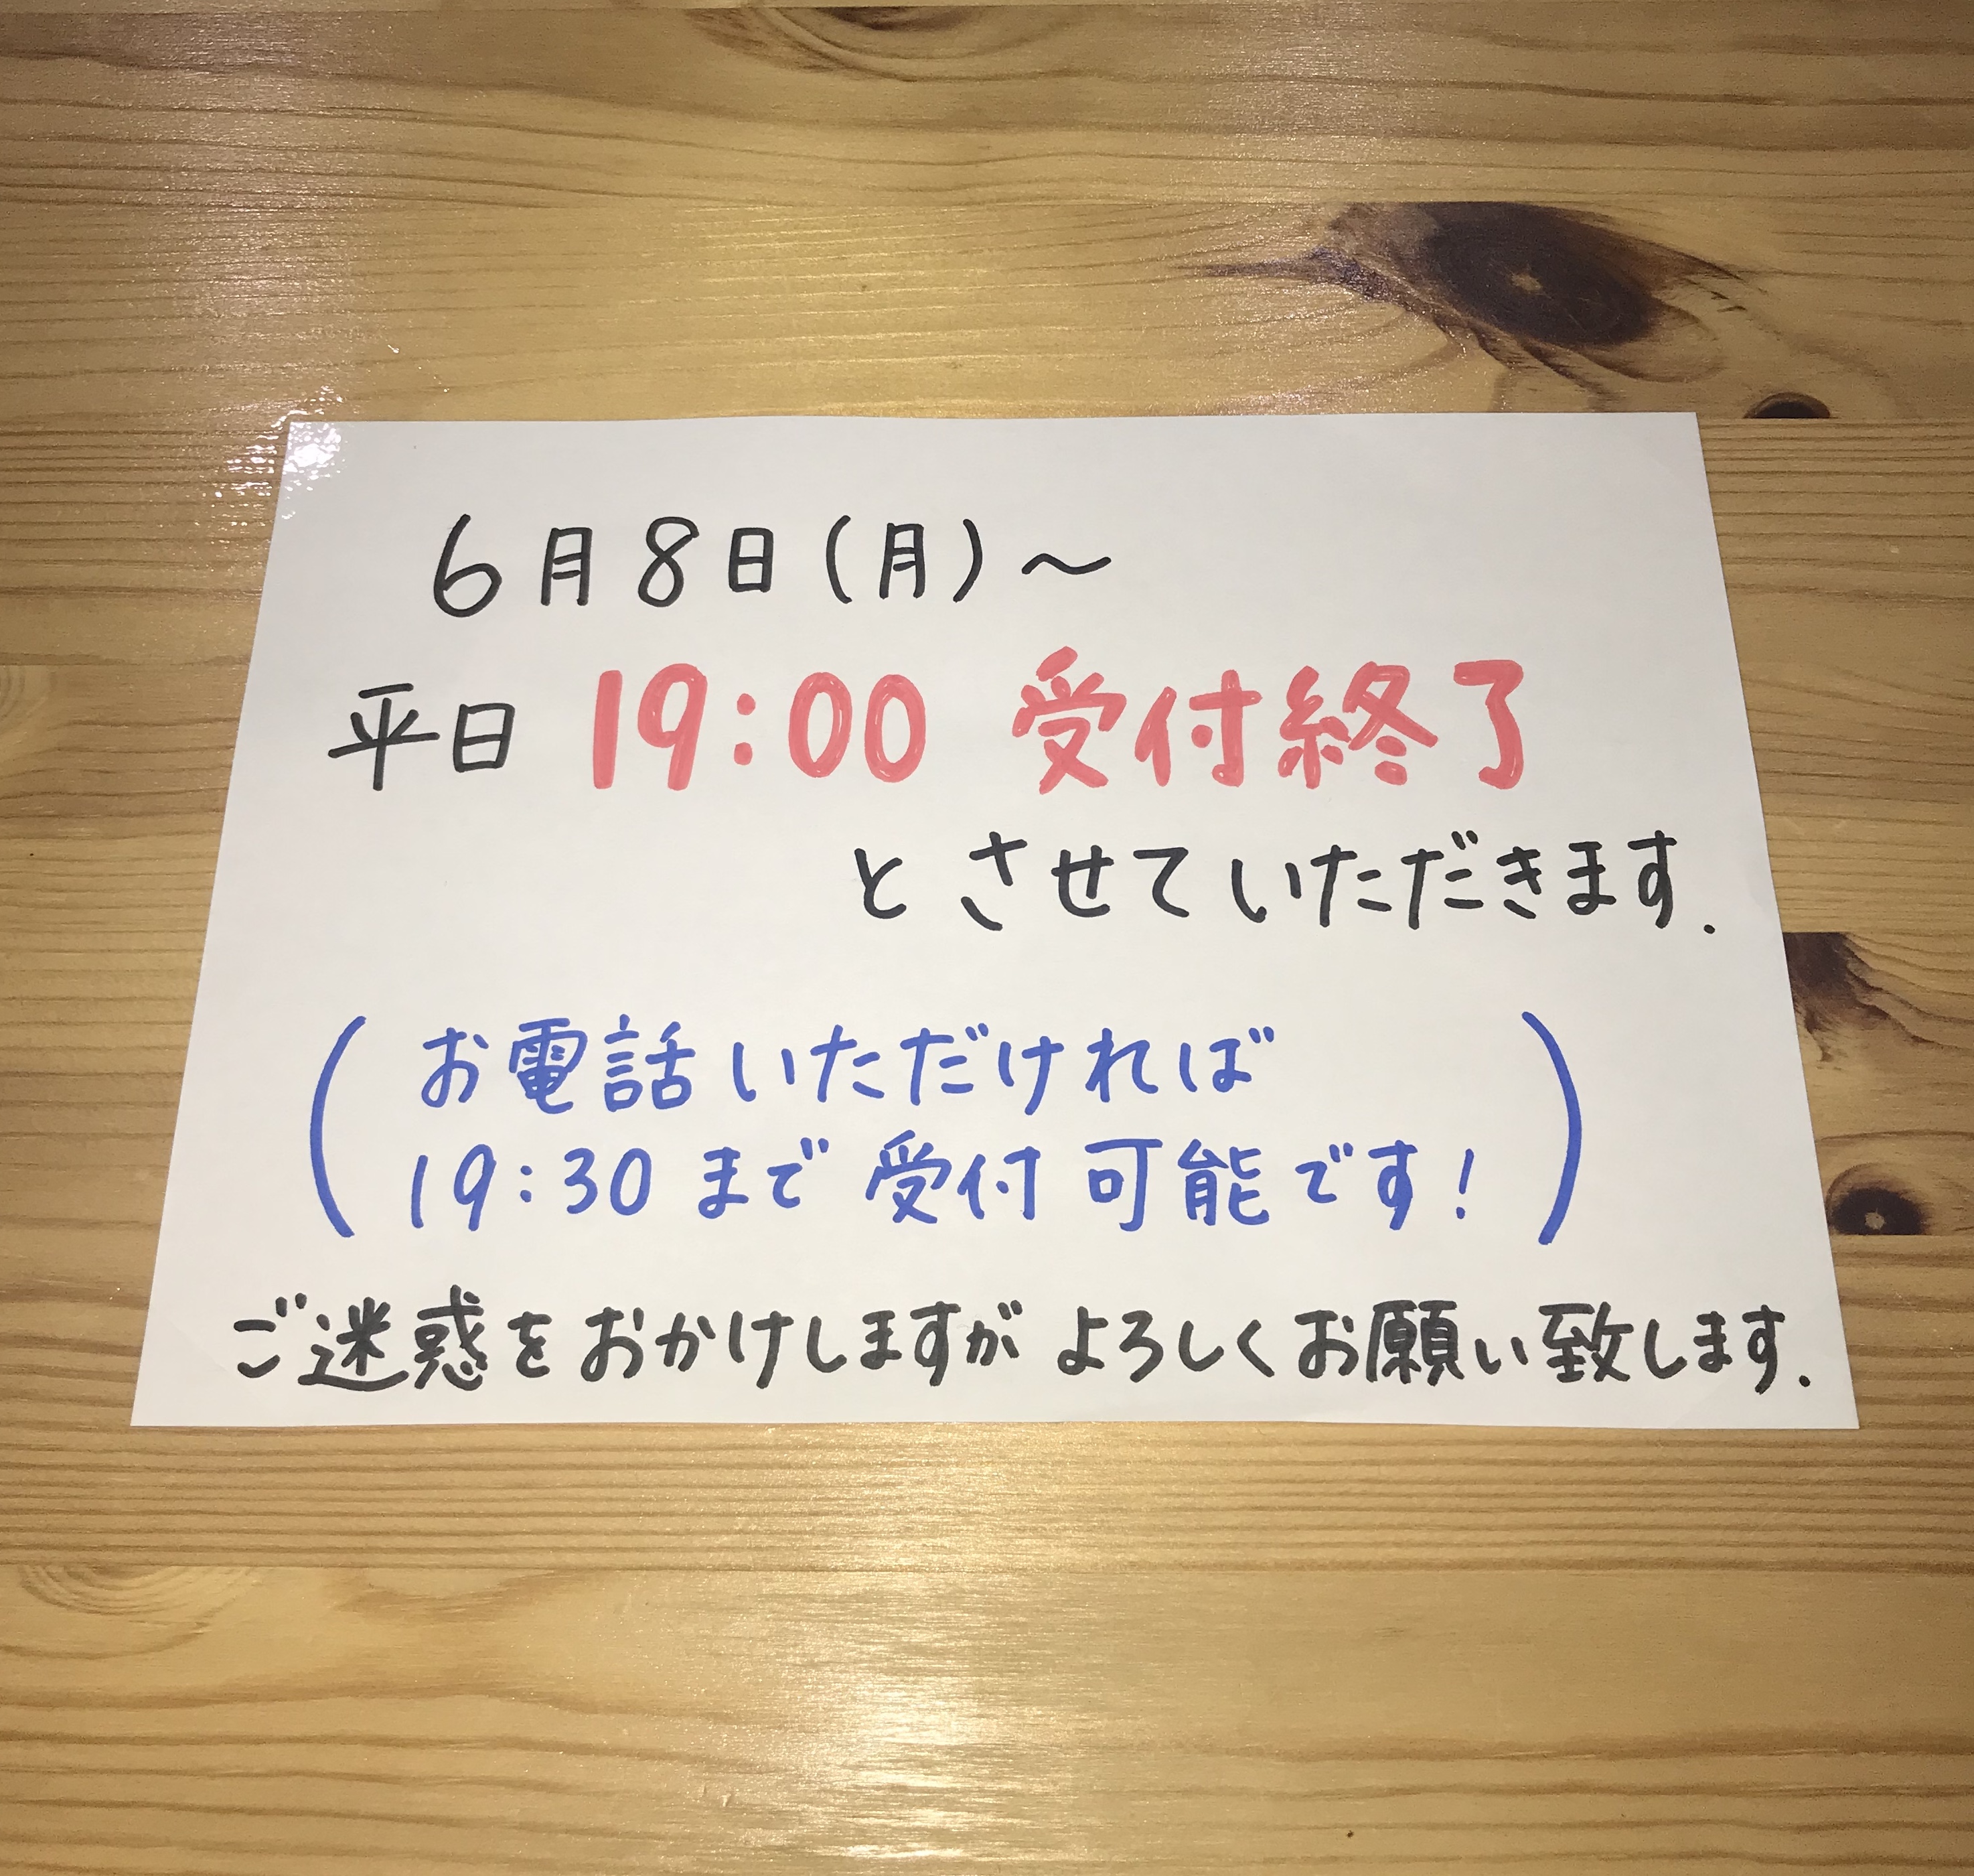 6月8日(月)～
平日 19:00 受付終了
とさせていただきます.
(お電話いただければ
19:30 まで 受付 可能です!)
ご迷惑をおかけしますが よろしくお願い致します.